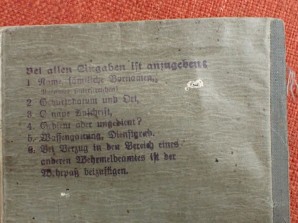 Bei allen Eingaben ist anzugeben:
1
2 Geburtsdatum und Ort,
3
4 Gedient oder ungedient?
5. Waffengattung, Dienstgrad.
6. Bei Verzug in den Bereich eines
anderen Wehrmeldeamtes ist der
Wehrpaß beizufügen.